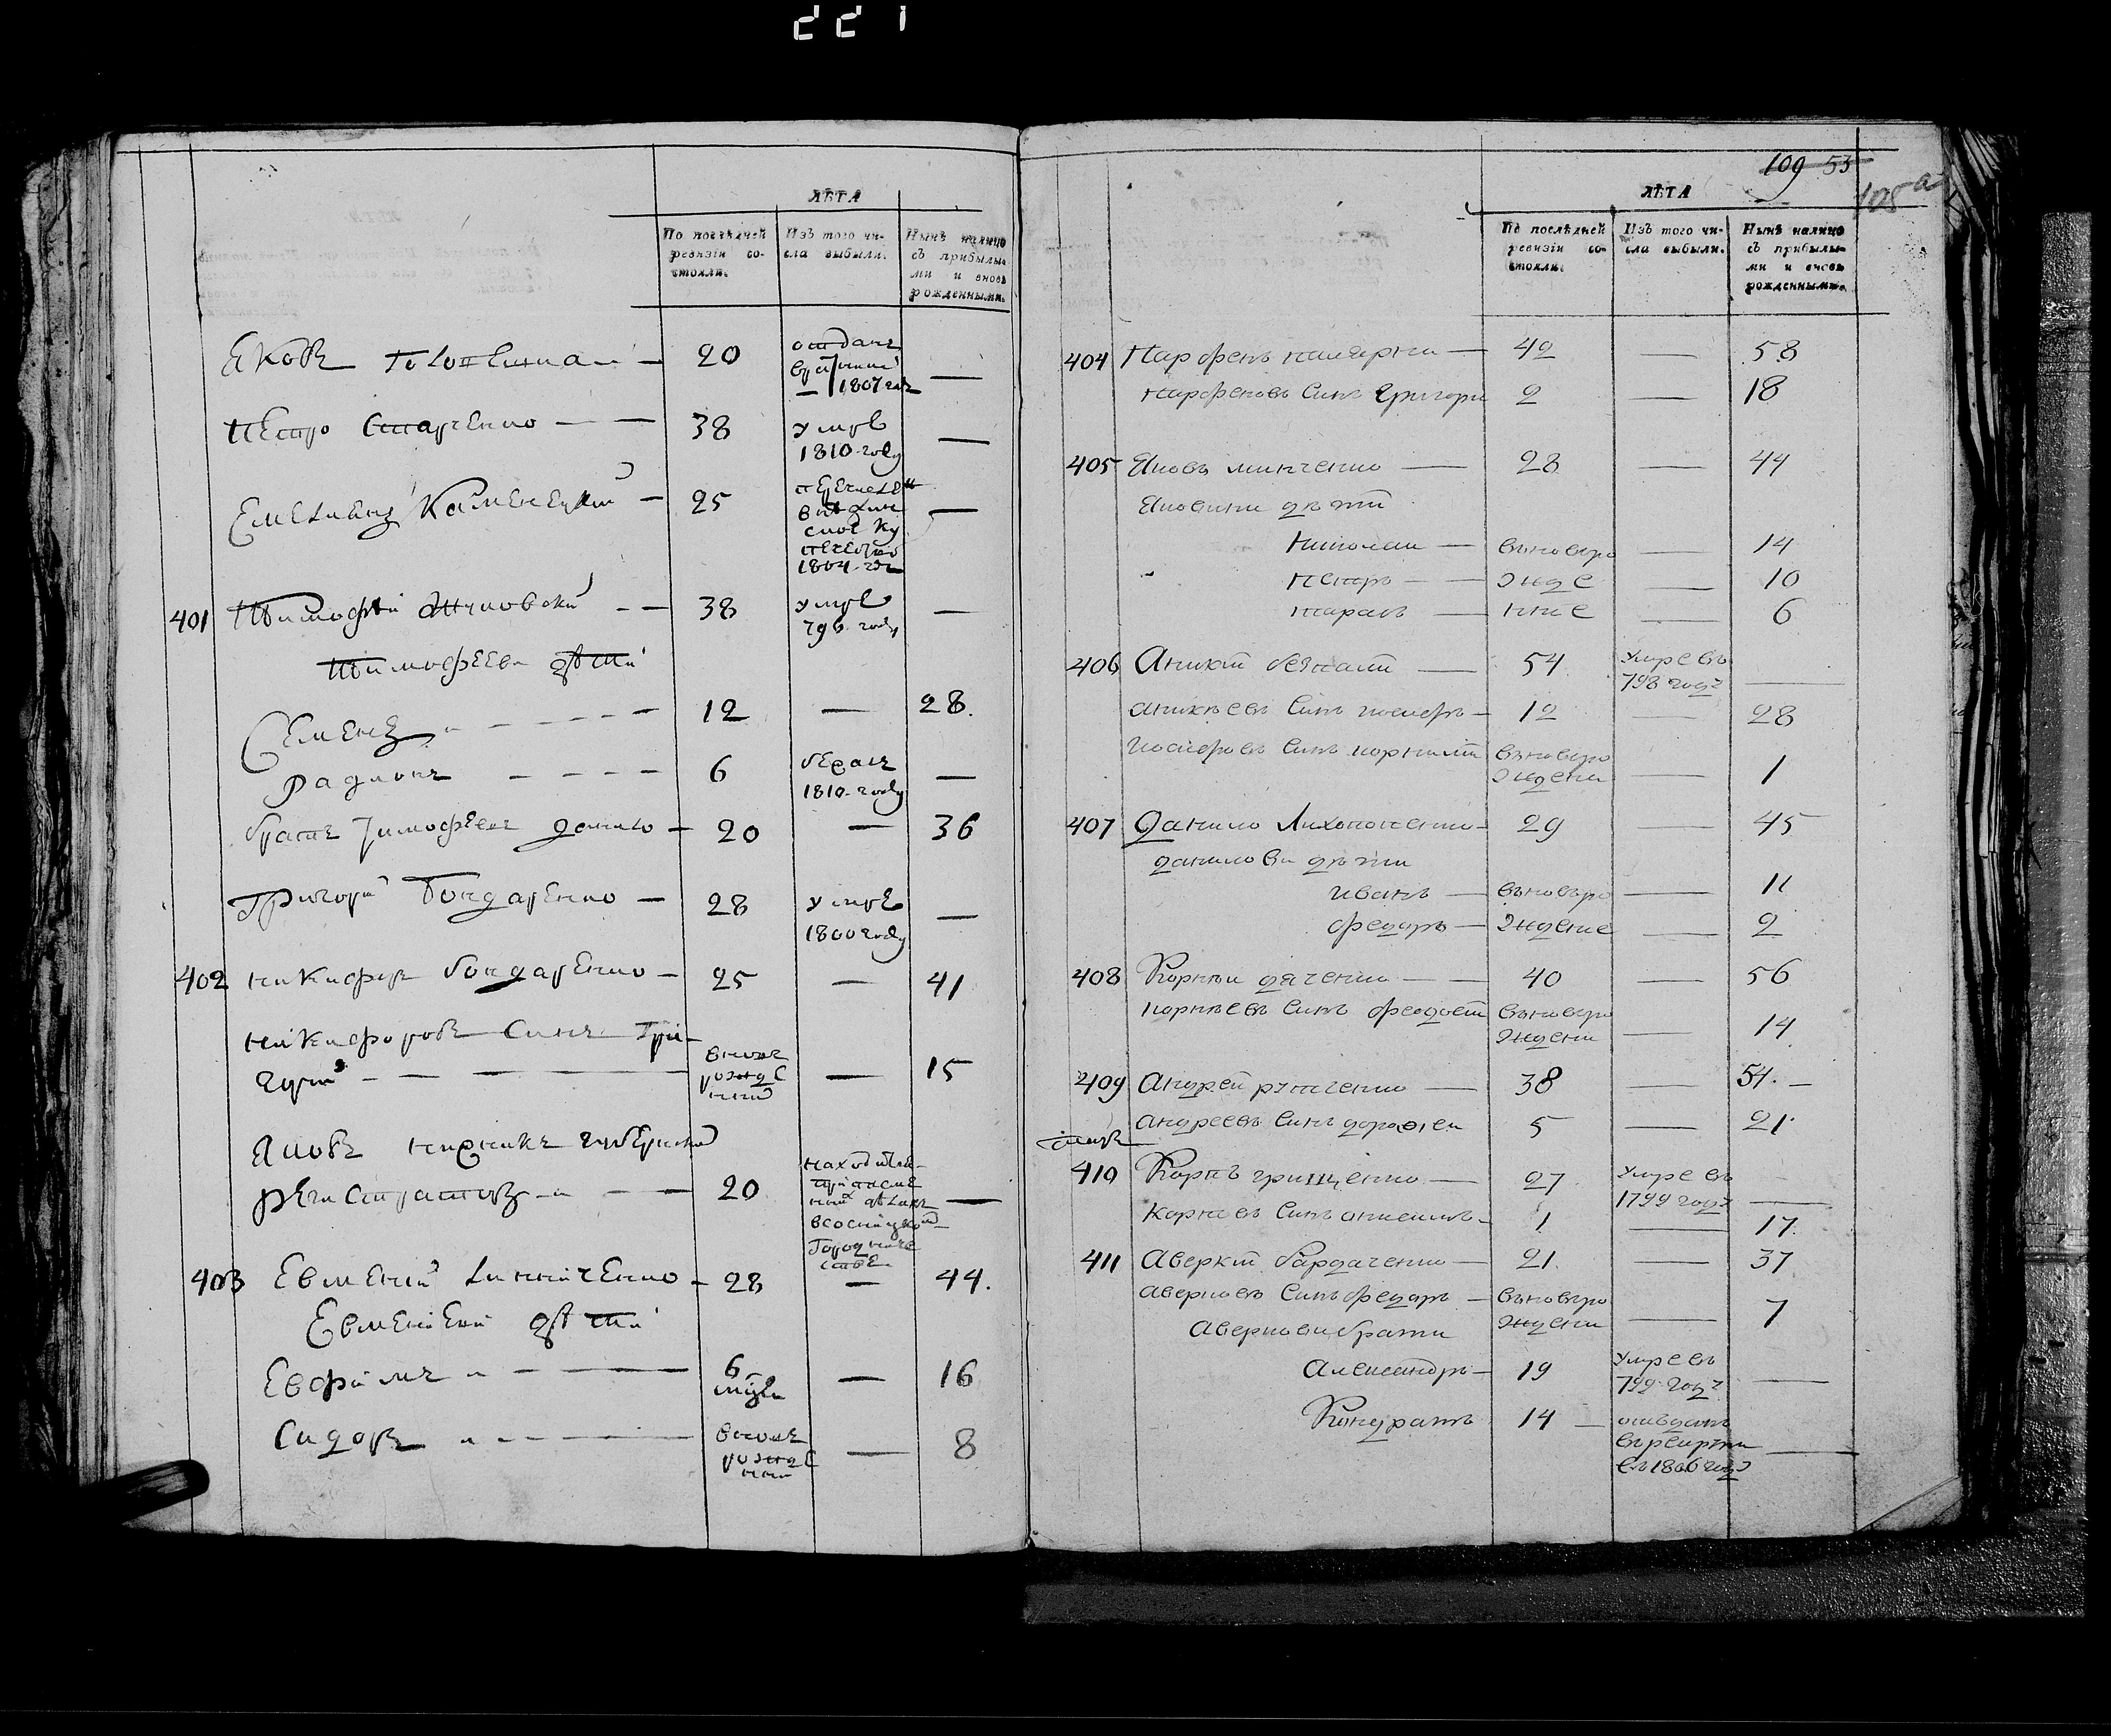 221
ЛѢТА
По послѣдней ревизіи со-
стояли.
Изъ того чи-
сла выбыли.
Нынѣ налицо
съ прибылы-
ми и вновь
рожденными.
Яковъ — 20
отданъ
1807 —
Петро Старченко — 38
умре
1810 году —
Емельянъ Каменецкий — 25
1804 —
401 Тимофѣй — 38
умре
796 году —
Тимофѣеви дѣти
Семенъ — 12 — 28.
Радионъ — 6
бежалъ
1810 году —
братъ Тимофѣевъ данило — 20 — 36
Григорий Бондаренко — 28
умре
1800 году —
402 никифоръ бондаренко — 25 — 41
никифоровъ синъ Гри-
горий — вновь
рожде
ний — 15
Яковъ губернский
регистраторъ — 20 —
403 Евмений линниченко — 28 — 44.
Евмениеви дѣти
Евфимъ — 6 — 16
Сидоръ — вновь
рожде
ний — 8
109 53
108 а
ЛѢТА
По послѣдней
ревизіи со-
стояли.
Изъ того чи-
сла выбыли.
Нынѣ налицо
съ прибылы-
ми и вновь
рожденными.
404 Парфенъ — 42 — 58
парфеновъ синъ Григори 2 — 18
405 Яковъ минченко — 28 — 44
Яковини дѣти
Николаи — вьновьро — 14
Петръ — жде — 10
тарасъ — ние — 6
406 Аникий — 54 Умре въ
798 году —
аникѣевъ синъ иосифъ — 12 — 28
иосифовъ синъ корнилий вьновьро
ждени — 1
407 Данило Лихопоенко — 29 — 45
данилови дѣти
иванъ — вьновьро — 11
федоръ — ждение — 2
408 Корнѣи дяченко — 40 — 56
корнѣевъ синъ феодосий вьновьро
ждени — 14
409 Андрей — 38 — 54. —
андреевъ синъ дорофеи 5 — 21.
410 Корнѣ грищенко — 27 Умре въ
1799 году —
Корнѣевъ синъ онисимъ — 1 — 17.
411 Аверкий бардаченко — 21. — 37
аверковъ синъ федоръ — вьновьро
ждени — 7
Аверкови брати
Александръ — 19 Умре въ
799 году —
Кондратъ 14 — отъданъ
въ рекрути
въ 1806 году —